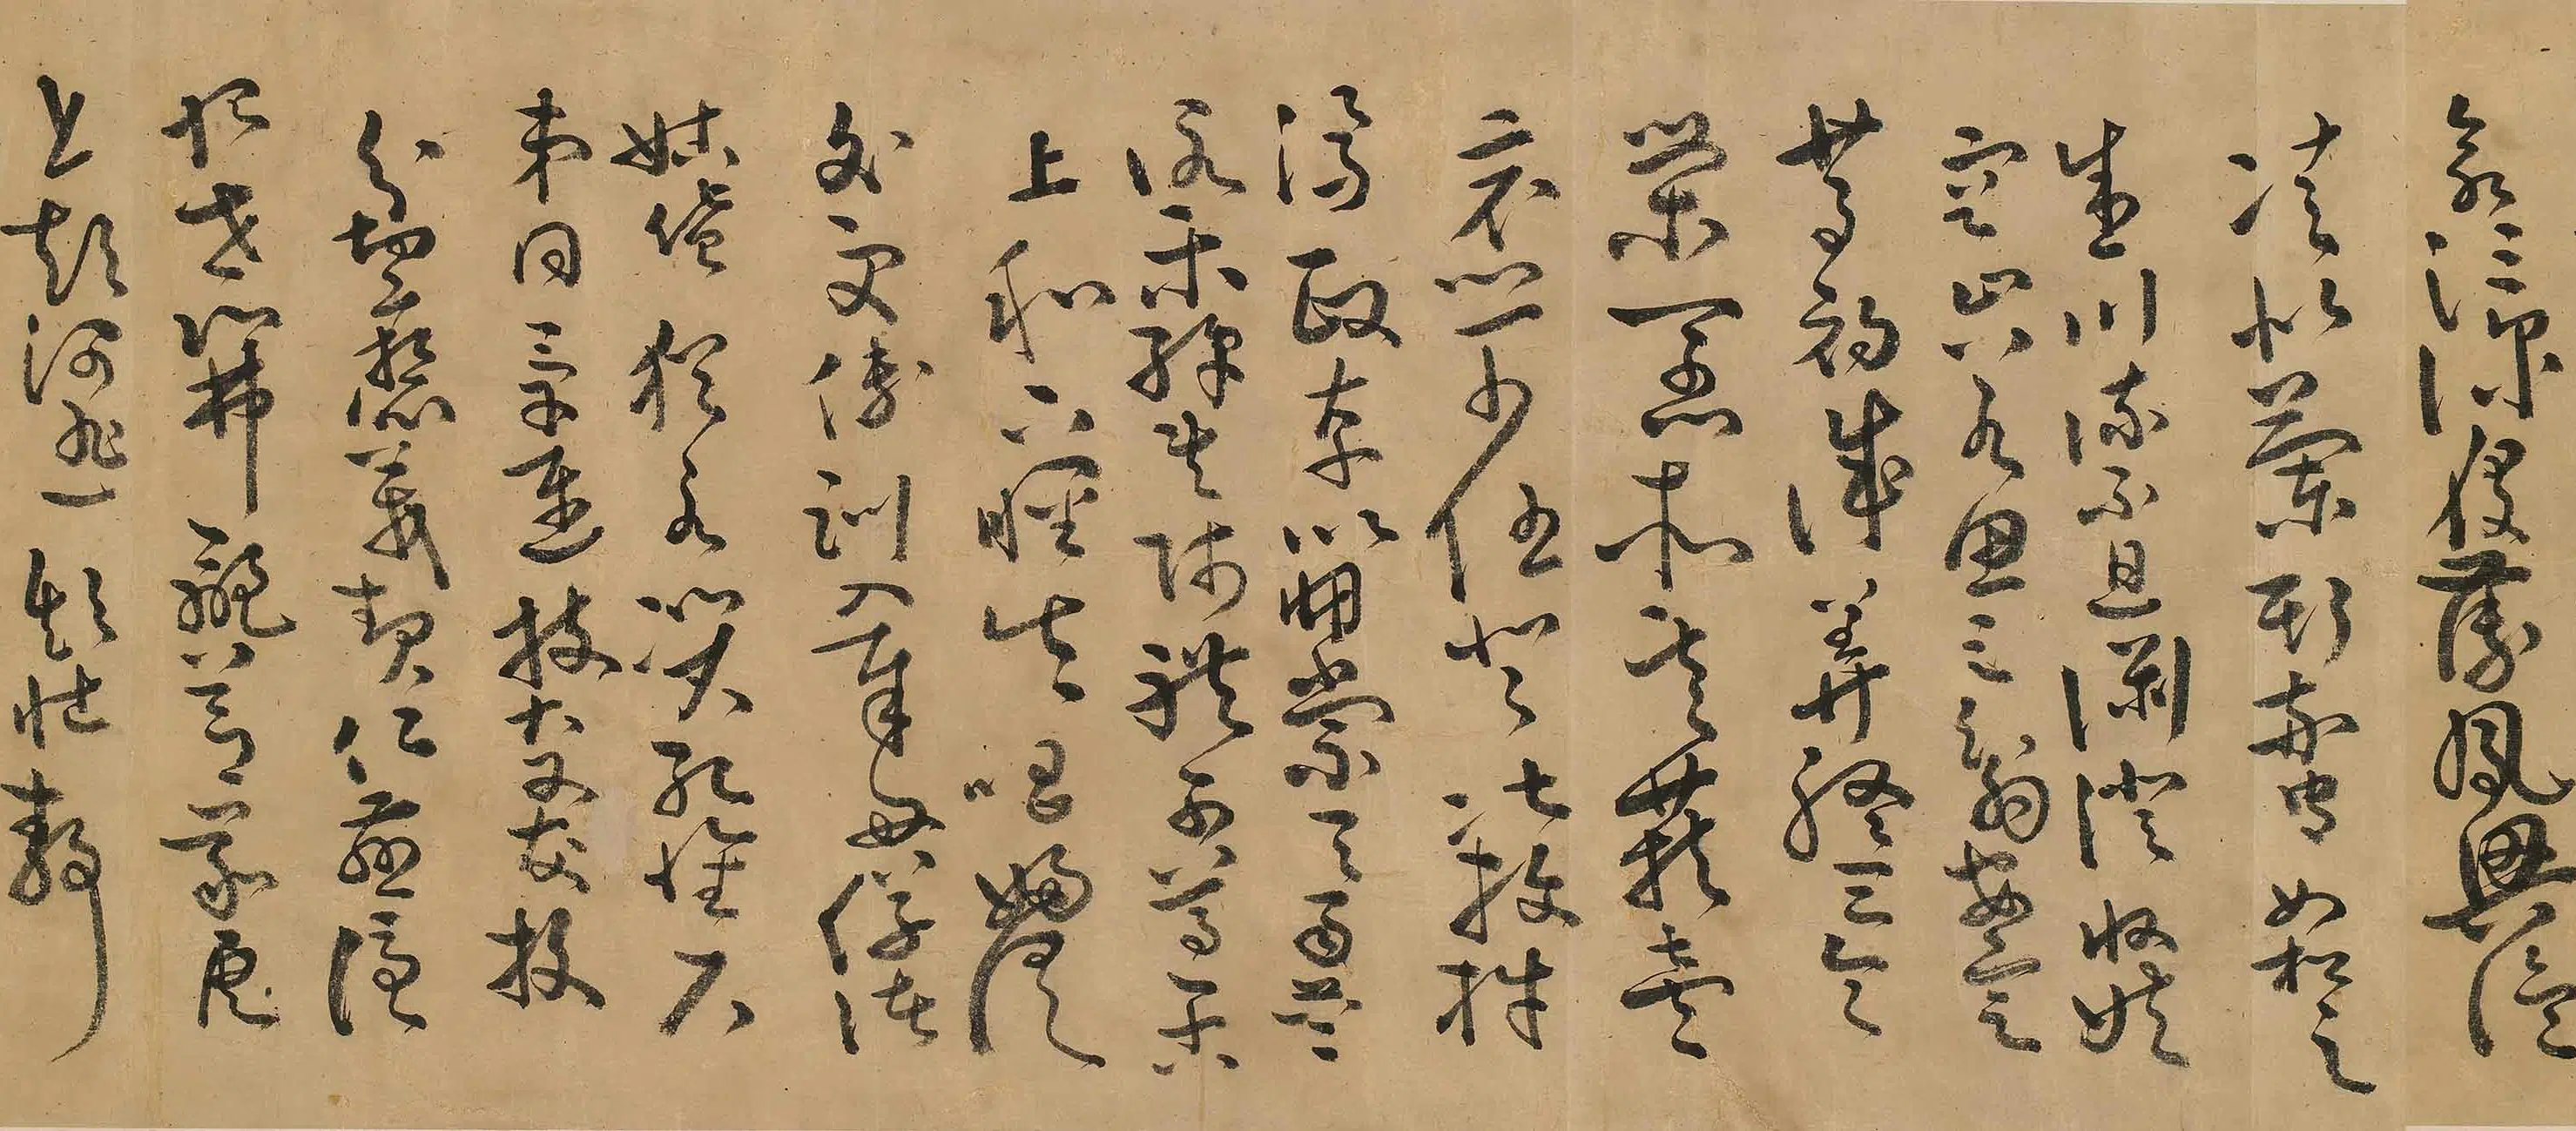 命臨深履薄夙興溫
凊似蘭斯馨如松之
盛川流不息淵澄取映
容止若思言辭安定
篤初誠美慎終宜令
榮業所基籍甚無
竟學優登仕攝職
從政存以甘棠去而益
詠樂殊貴賤禮別尊卑
上和下睦夫唱婦隨
外受傅訓入奉母儀諸
姑伯叔猶子比兒孔懷兄
弟同氣連枝交友投
分切磨箴規仁慈隱
惻造次弗離節義廉
退顛沛匪虧性靜